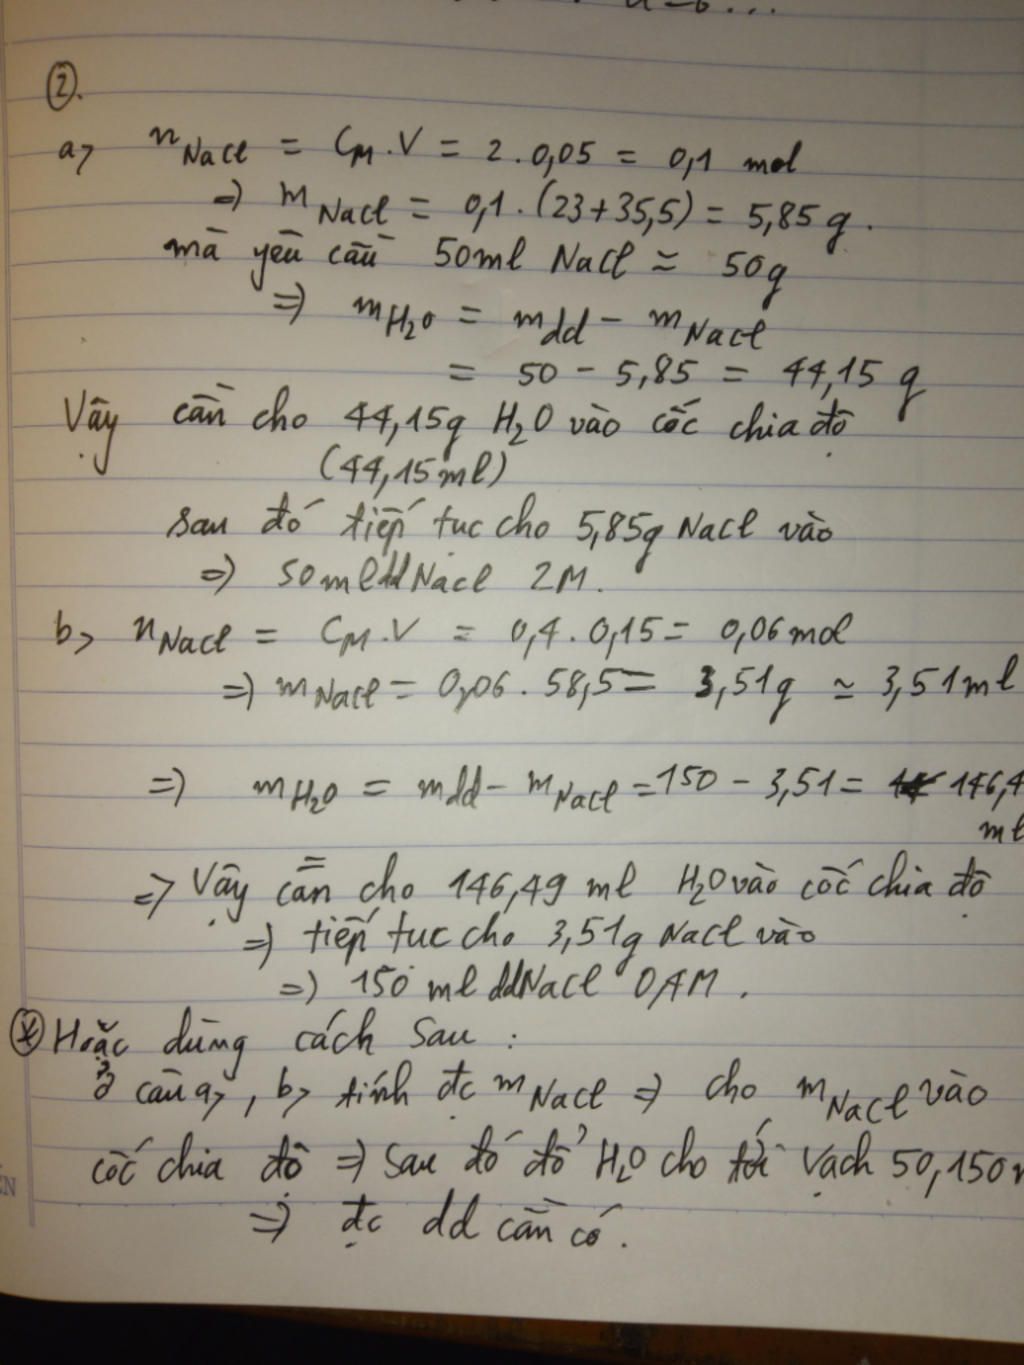 ②.
a, n NaCl = CM.V = 2.0,05 = 0,1 mol
=> m NaCl = 0,1.(23+35,5) = 5,85g.
mà yêu cầu 50ml NaCl ≈ 50g
=> mH2O = mdd - mNaCl
= 50 - 5,85 = 44,15 g
Vậy cần cho 44,15g H2O vào cốc chia độ
(44,15ml)
sau đó tiếp tục cho 5,85g NaCl vào
=> 50ml dd NaCl 2M.
b, n NaCl = CM.V = 0,4.0,15 = 0,06 mol
=> m NaCl = 0,06.58,5 = 3,51g ≃ 3,51ml
=> mH2O = mdd - mNaCl = 150 - 3,51 = 146,4
ml
=> Vậy cần cho 146,49 ml H2O vào cốc chia độ
=> tiếp tục cho 3,51g NaCl vào
=> 150 ml ddNaCl 0,4M.
* Hoặc dùng cách sau :
Ở câu a, , b, tính đc mNaCl => cho mNaCl vào
cốc chia độ => sau đó đổ H2O cho tới vạch 50,150
=> đc dd cần có.